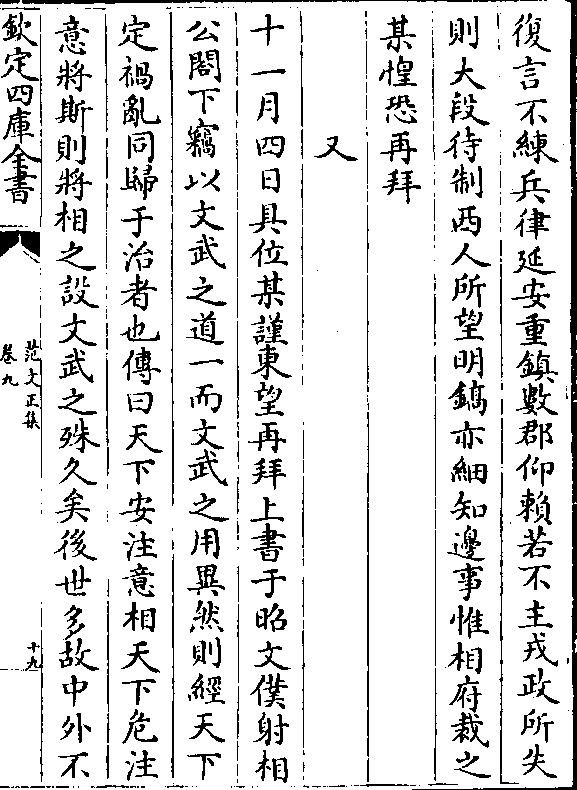 復言不練兵律延安重鎮數郡仰賴若不主戎政所失
則大段待制西人所望明鎬亦細知邊事惟相府裁之
某惶恐再拜
又
十一月四日具位某謹東望再拜上書于昭文僕射相
公閣下竊以文武之道一而文武之用異然則經天下
定禍亂同歸于治者也傳曰天下安注意相天下危注
意將斯則將相之設文武之殊久矣後世多故中外不
欽定四庫全書
范文正集
卷九
十九